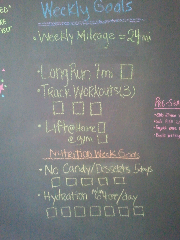 Weekly Goals
• Weekly Mileage = 24 mi
• Long Run: 7m
• Track Workouts (3)
• Lift @ home
@ gym
Nutrition Week Goals
• No Candy/Desserts 5 days
• Hydration 64oz/day